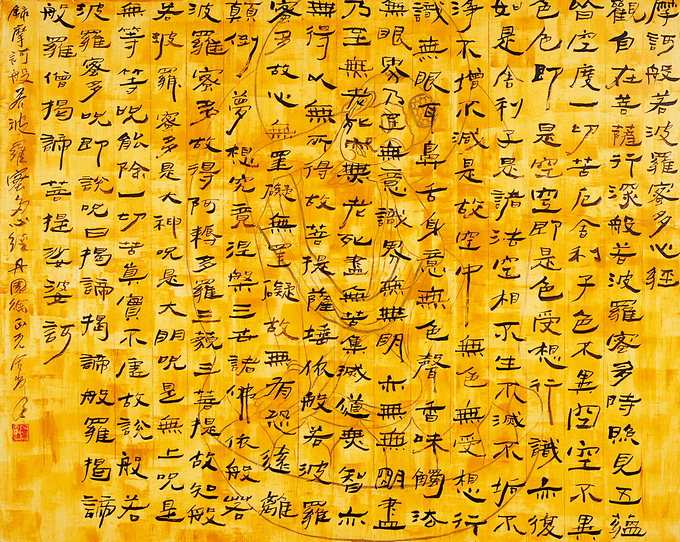 摩訶般若波羅密多心經
觀自在菩薩行深般若波羅密多時照見五蘊
皆空度一切苦厄舍利子色不異空空不異
色色即是空空即是色受想行識亦復
如是舍利子是諸法空相不生不滅不垢不
淨不增不減是故空中無色無受想行
識無眼耳鼻舌身意無色聲香味觸法
無眼界乃至無意識界無無明亦無無明盡
乃至無老死亦無老死盡無苦集滅道無智亦
無得以無所得故菩提薩埵依般若波羅
密多故心無罣礙無罣礙故無有恐遠離
顛倒夢想究竟涅槃三世諸佛依般若
波羅密多故得阿耨多羅三藐三菩提故知般
若波羅密多是大神呪是大明呪是無上呪是
無等等呪能除一切苦真實不虛故說般若
波羅密多呪即說呪曰揭諦揭諦般羅揭諦
般羅僧揭諦菩提娑婆訶
錄摩訶般若波羅密多心經丹園徐